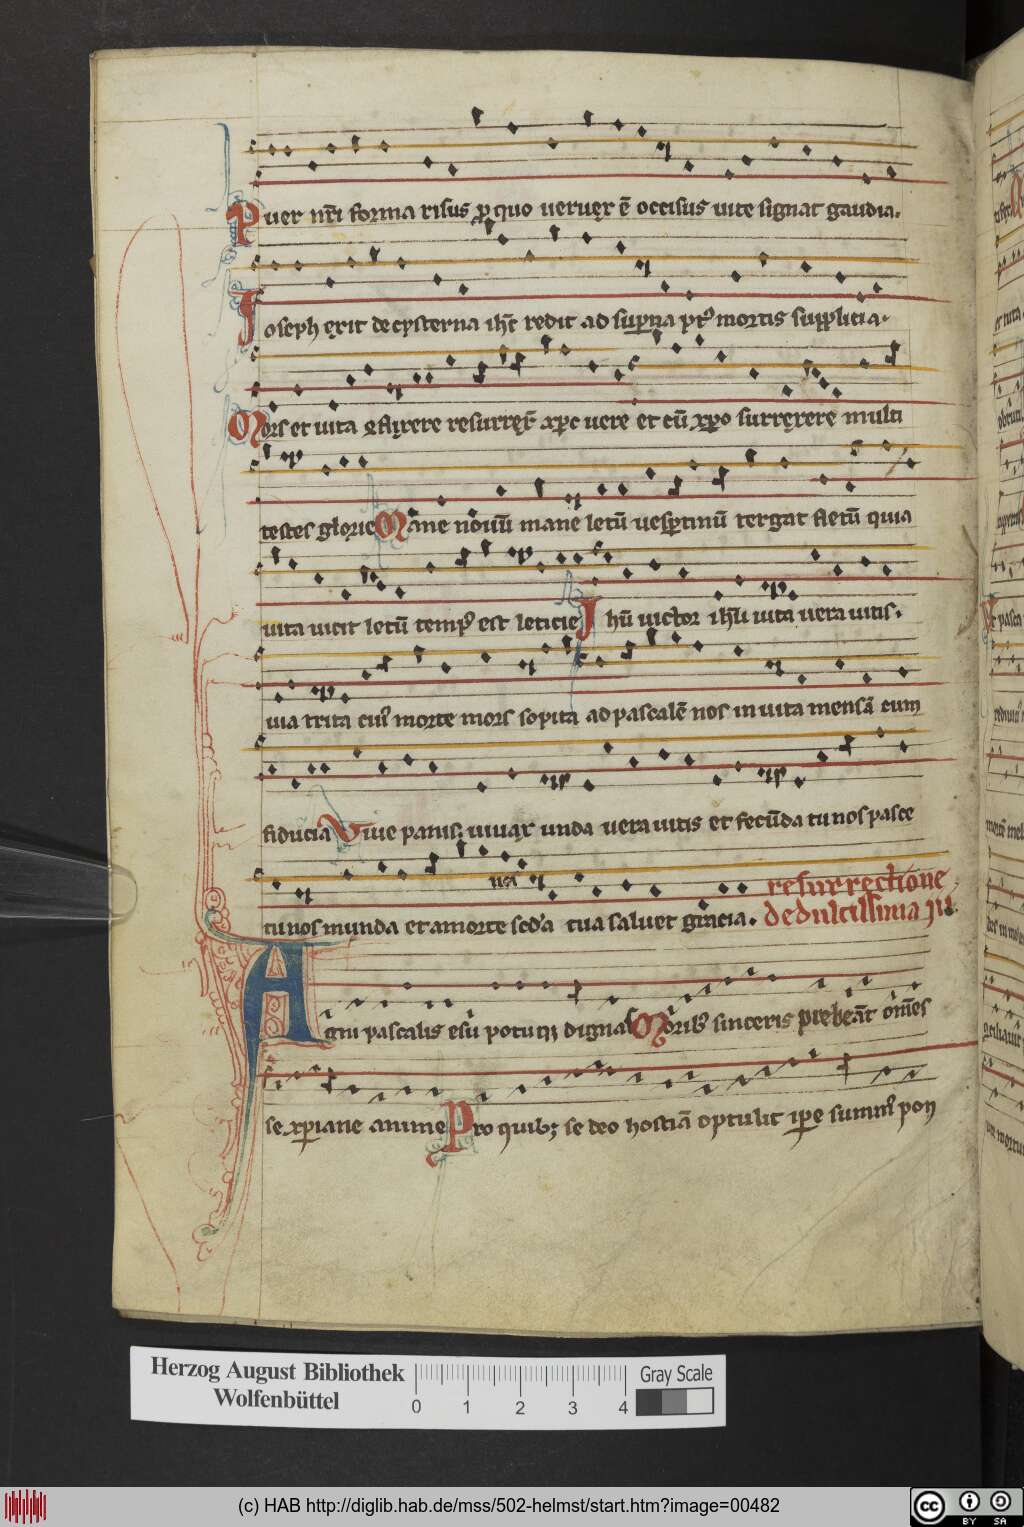 Puer nr̄i forma risus ꝓ quo ueruex ē occisus uite signat gaudia.
Joseph exit de cysterna ih̄c redit ad suꝑna pꝰ mortis supplicia.
Mors et uita ꝯflixere resurrex̄ xp̄c uere et cū xp̄o surrexere multi
testes glorie Mane nouū mane letū uesꝑtinū tergat fletū quia
uita uicit letū tempꝰ est leticie Jhū uictor ih̄u uita uera uitis.
uia trita cuiꝰ morte mors sopita ad pascalē nos inuita mensā cum
fiducia Uiue panis uiuax unda uera uitis et fecūda tu nos pasce
na
tu nos munda et a morte secd̄a tua saluet gracia.
resurrectione
de dulcissima
Agni pascalis esu potuqꝫ dignas Moribꝰ sinceris prebeāt om̄es
se xp̄iane anime Pro quibꝫ se deo hostiā optulit ip̄e summꝰ pon
Herzog August Bibliothek
Wolfenbüttel
0 1 2 3 4
Gray Scale
(c) HAB http://diglib.hab.de/mss/502-helmst/start.htm?image=00482
cc BY SA